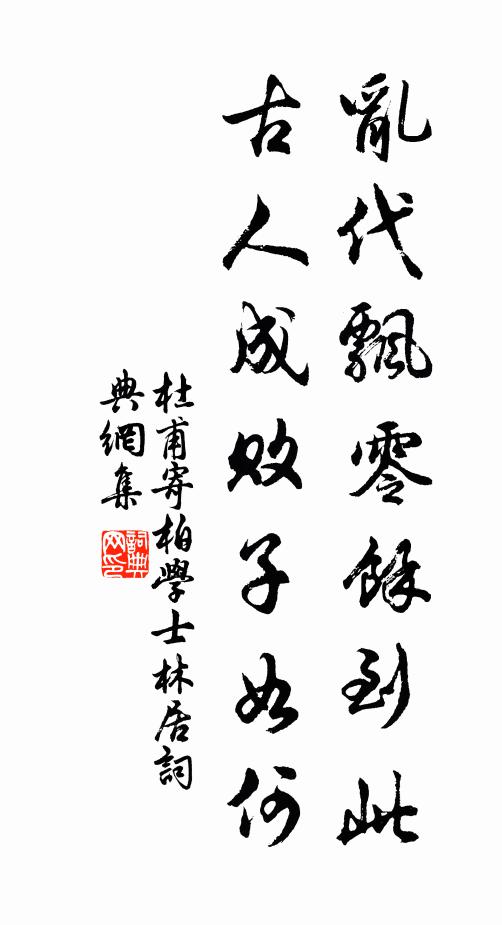 亂代飄零餘到此
古人成敗子如何
杜甫寄柏學士林居詞
典網集
詞典网印